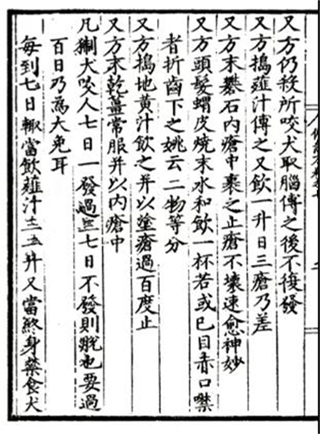 又方仍殺所咬犬取腦傅之後不復發
又方搗薤汁傅之又飲一升日三瘡乃差
又方末礬石內瘡中裹之止瘡不壞速愈神妙
又方頭髮蝟皮燒末水和飲一杯若或已目赤口噤
者折齒下之姚云二物等分
又方搗地黃汁飲之并以塗瘡過百度止
又方末乾薑常服并以內瘡中
凡猘犬咬人七日一發過三七日不發則脫也要過
百日乃為大免耳
每到七日輒當飲薤汁三二升又當終身禁食犬